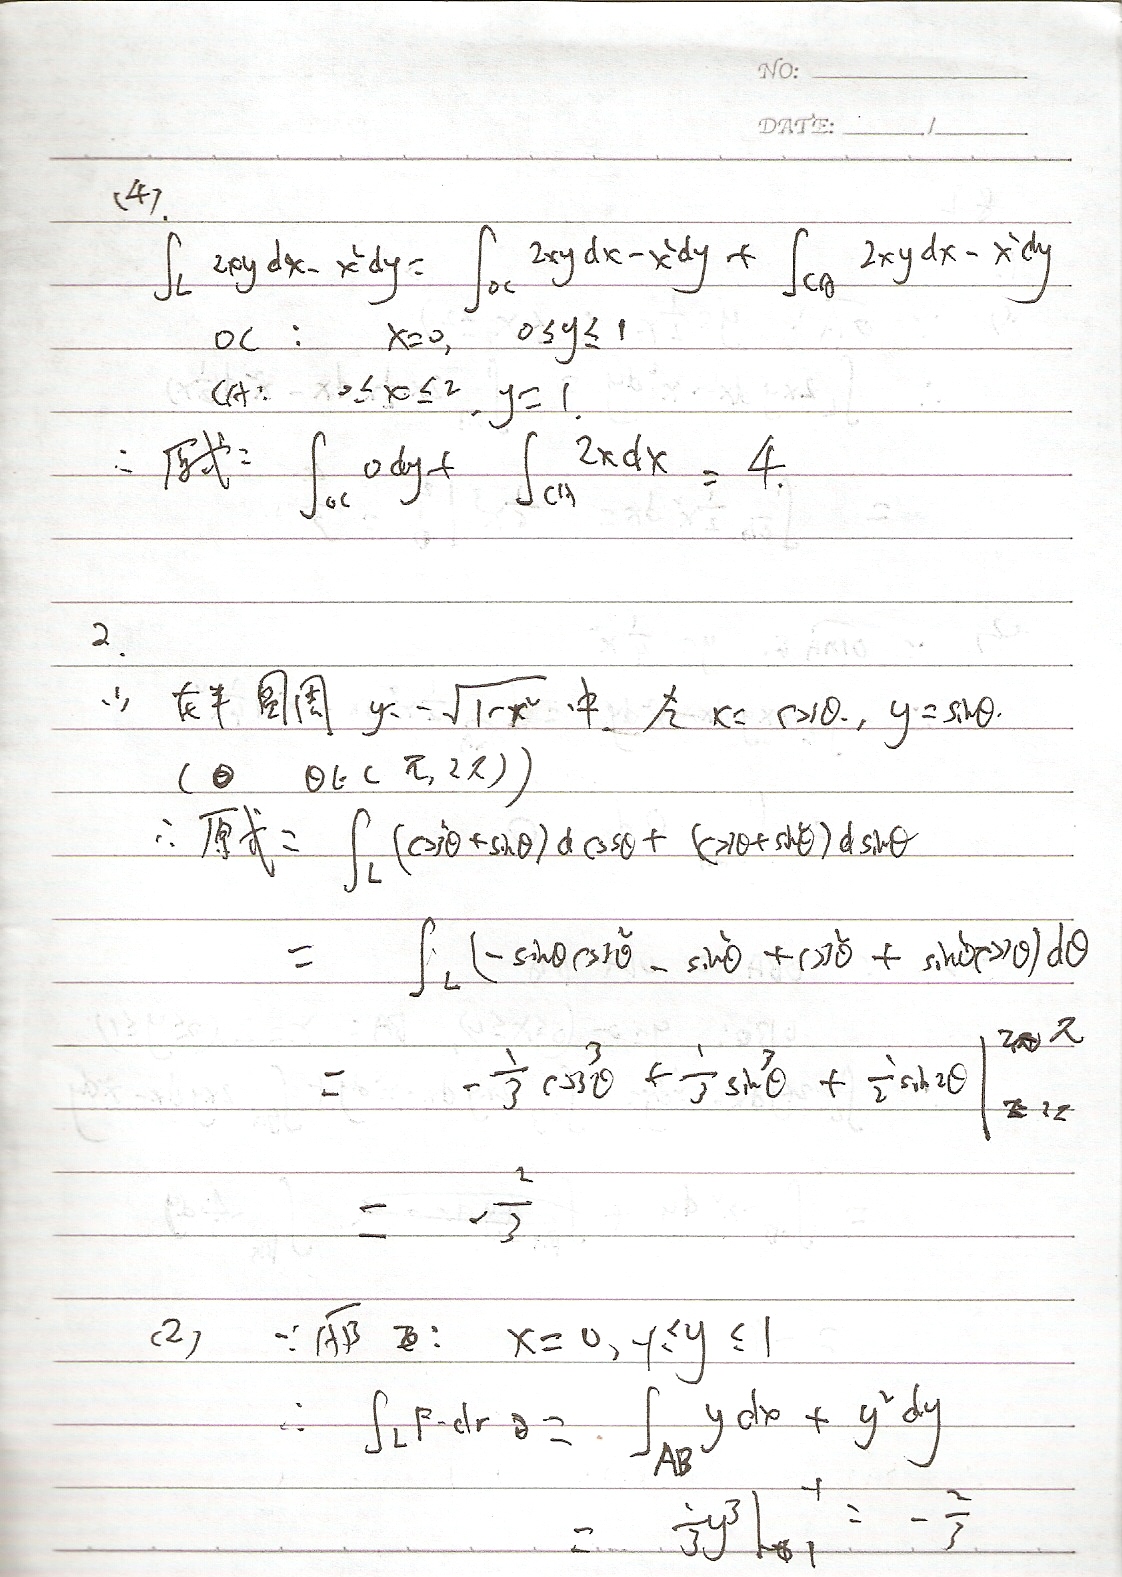 NO:
DATE: /
(4).
∫_L 2xy dx - x²dy = ∫_OC 2xy dx - x²dy + ∫_CA 2xy dx - x²dy
OC : x=0, 0≤y≤1
CA: 0≤x≤2, y=1.
∴ 原式= ∫_OC 0dy + ∫_CA 2xdx = 4.
2.
(1) 在半圆周 y=-√(1-x²) 中. 令 x= cosθ., y=sinθ.
( θ∈(π,2π))
∴ 原式= ∫_L (cos²θ+sinθ)dcosθ + (cosθ+sin²θ)dsinθ
= ∫_L (-sinθcos²θ - sin²θ + cos²θ + sin²θcosθ)dθ
= -1/3 cos³θ + 1/3 sin³θ + 1/2 sin2θ |
= -2/3
(2) ∵ AB : x=0, -1≤y≤1
∴ ∫_L F·dr = ∫_AB y dx + y²dy
= 1/3 y³ |₁⁻¹ = -2/3